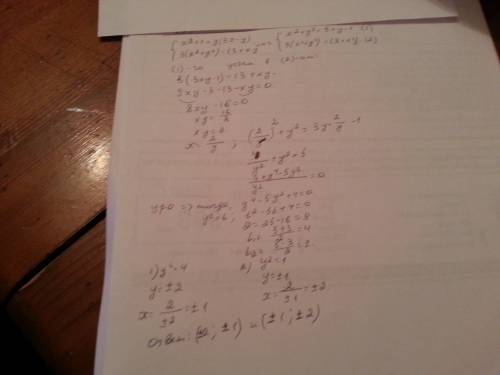 {x²+1=y(3x-y) {x²+y²=3xy-1 (1)
{3(x²+y²)=13+xy {3(x²+y²)=13+xy (2)
(1)-го в (2)-ое:
3(3xy-1)=13+xy
9xy-3-13-xy=0
8xy-16=0
xy=16/8
xy=2
x=2/y ; (2/y)²+y²=3y·2/y-1
4/y²+y²=5
(4+y⁴-5y²)/y²=0
y≠0 => тогда, y⁴-5y²+4=0
y²=t; t²-5t+4=0
D=25-16=9
t₁=(5+3)/2=4
t₂=(5-3)/2=1
1) y²=4
y=±2
x=2/±2=±1
2) y²=1
y=±1
x=2/±1=±2
Ответ: (±2; ±1) и (±1; ±2)